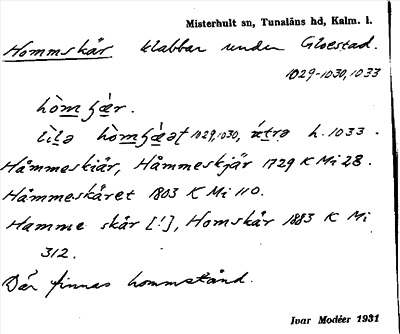 Misterhult sn, Tunaläns hd, Kalm. l.
Hommskär klabbar under Gloestad.
1029-1030, 1033
hòm ʃæ̀r.
lìlə hòmʃæ̀ət 1029, 1030, h. 1033.
Håmmeskiär, Håmmeskjär 1729 K Mi 28.
Håmmeskäret 1803 K Mi 110.
Hamme skär [!], Homskär 1883 K Mi
312.
Där finnas hommstånd.
Ivar Modéer 1931